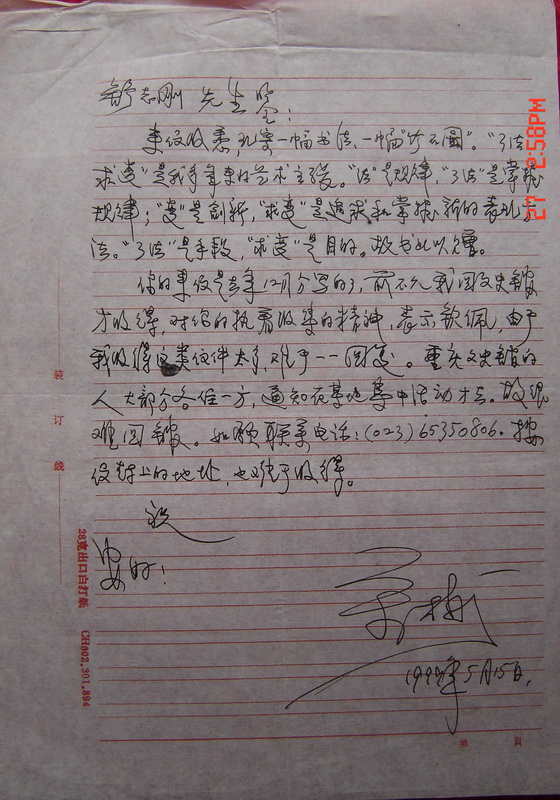 舒志刚 先生鉴:
来信收悉,现寄一幅书法、一幅"竹石图"。"了法
求变"是我多年来的艺术主张。"法"是规律,"了法"是掌握
规律;"变"是创新,"求变"是追求和掌握新的表现方
法。"了法"是手段,"求变"是目的。故书此以赠。
您的来信是去年12月分写的,前不久我回文史馆
才收得,对您的执着收集的精神,表示钦佩,由于
我收得这类信件太多,难于一一回复。重庆文史馆的
人大部分各住一方,通知在某地集中活动才去。故很
难回馆。如须联系电话:(023)65350806.按
信封上的地址,也难于收得。
祝
安好!
1999年5月15日.
装
订
线
28克出口白打纸 CH002.301.894
第 页
27 2:58PM